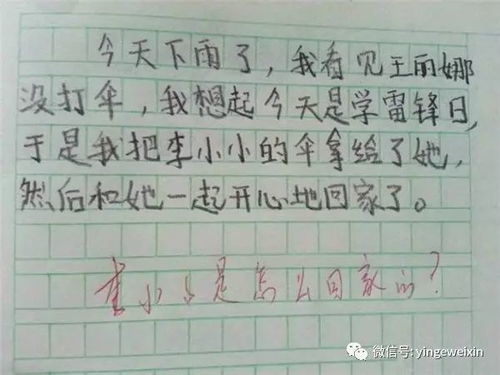 今天下雨了，我看见王丽娜
没打伞，我想起今天是学雷锋日，
于是我把李小小的伞拿给了她，
然后和她一起开心地回家了。
李小小是怎么回家的？
微信号: yingeweixin